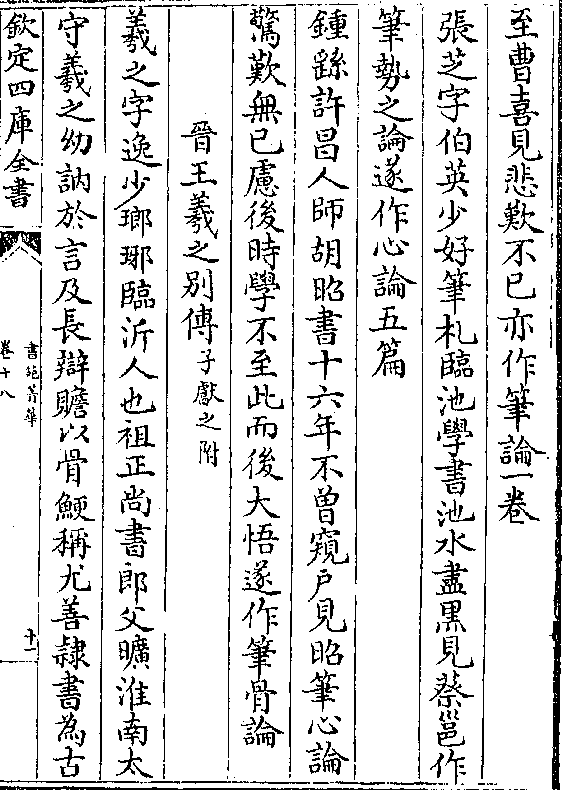 至曹喜見悲歎不已亦作筆論一卷
張芝字伯英少好筆札臨池學書池水盡黒見蔡邕作
筆勢之論遂作心論五篇
鍾繇許昌人師胡昭書十六年不曾窺戸見昭筆心論
驚歎無已慮後時學不至此而後大悟遂作筆骨論
晉王羲之別傳子獻之附
羲之字逸少瑯琊臨沂人也祖正尚書郎父曠淮南太
守羲之幼訥於言及長辯贍以骨鯁稱尤善隸書為古
欽定四庫全書
書苑菁華
卷十八
十一